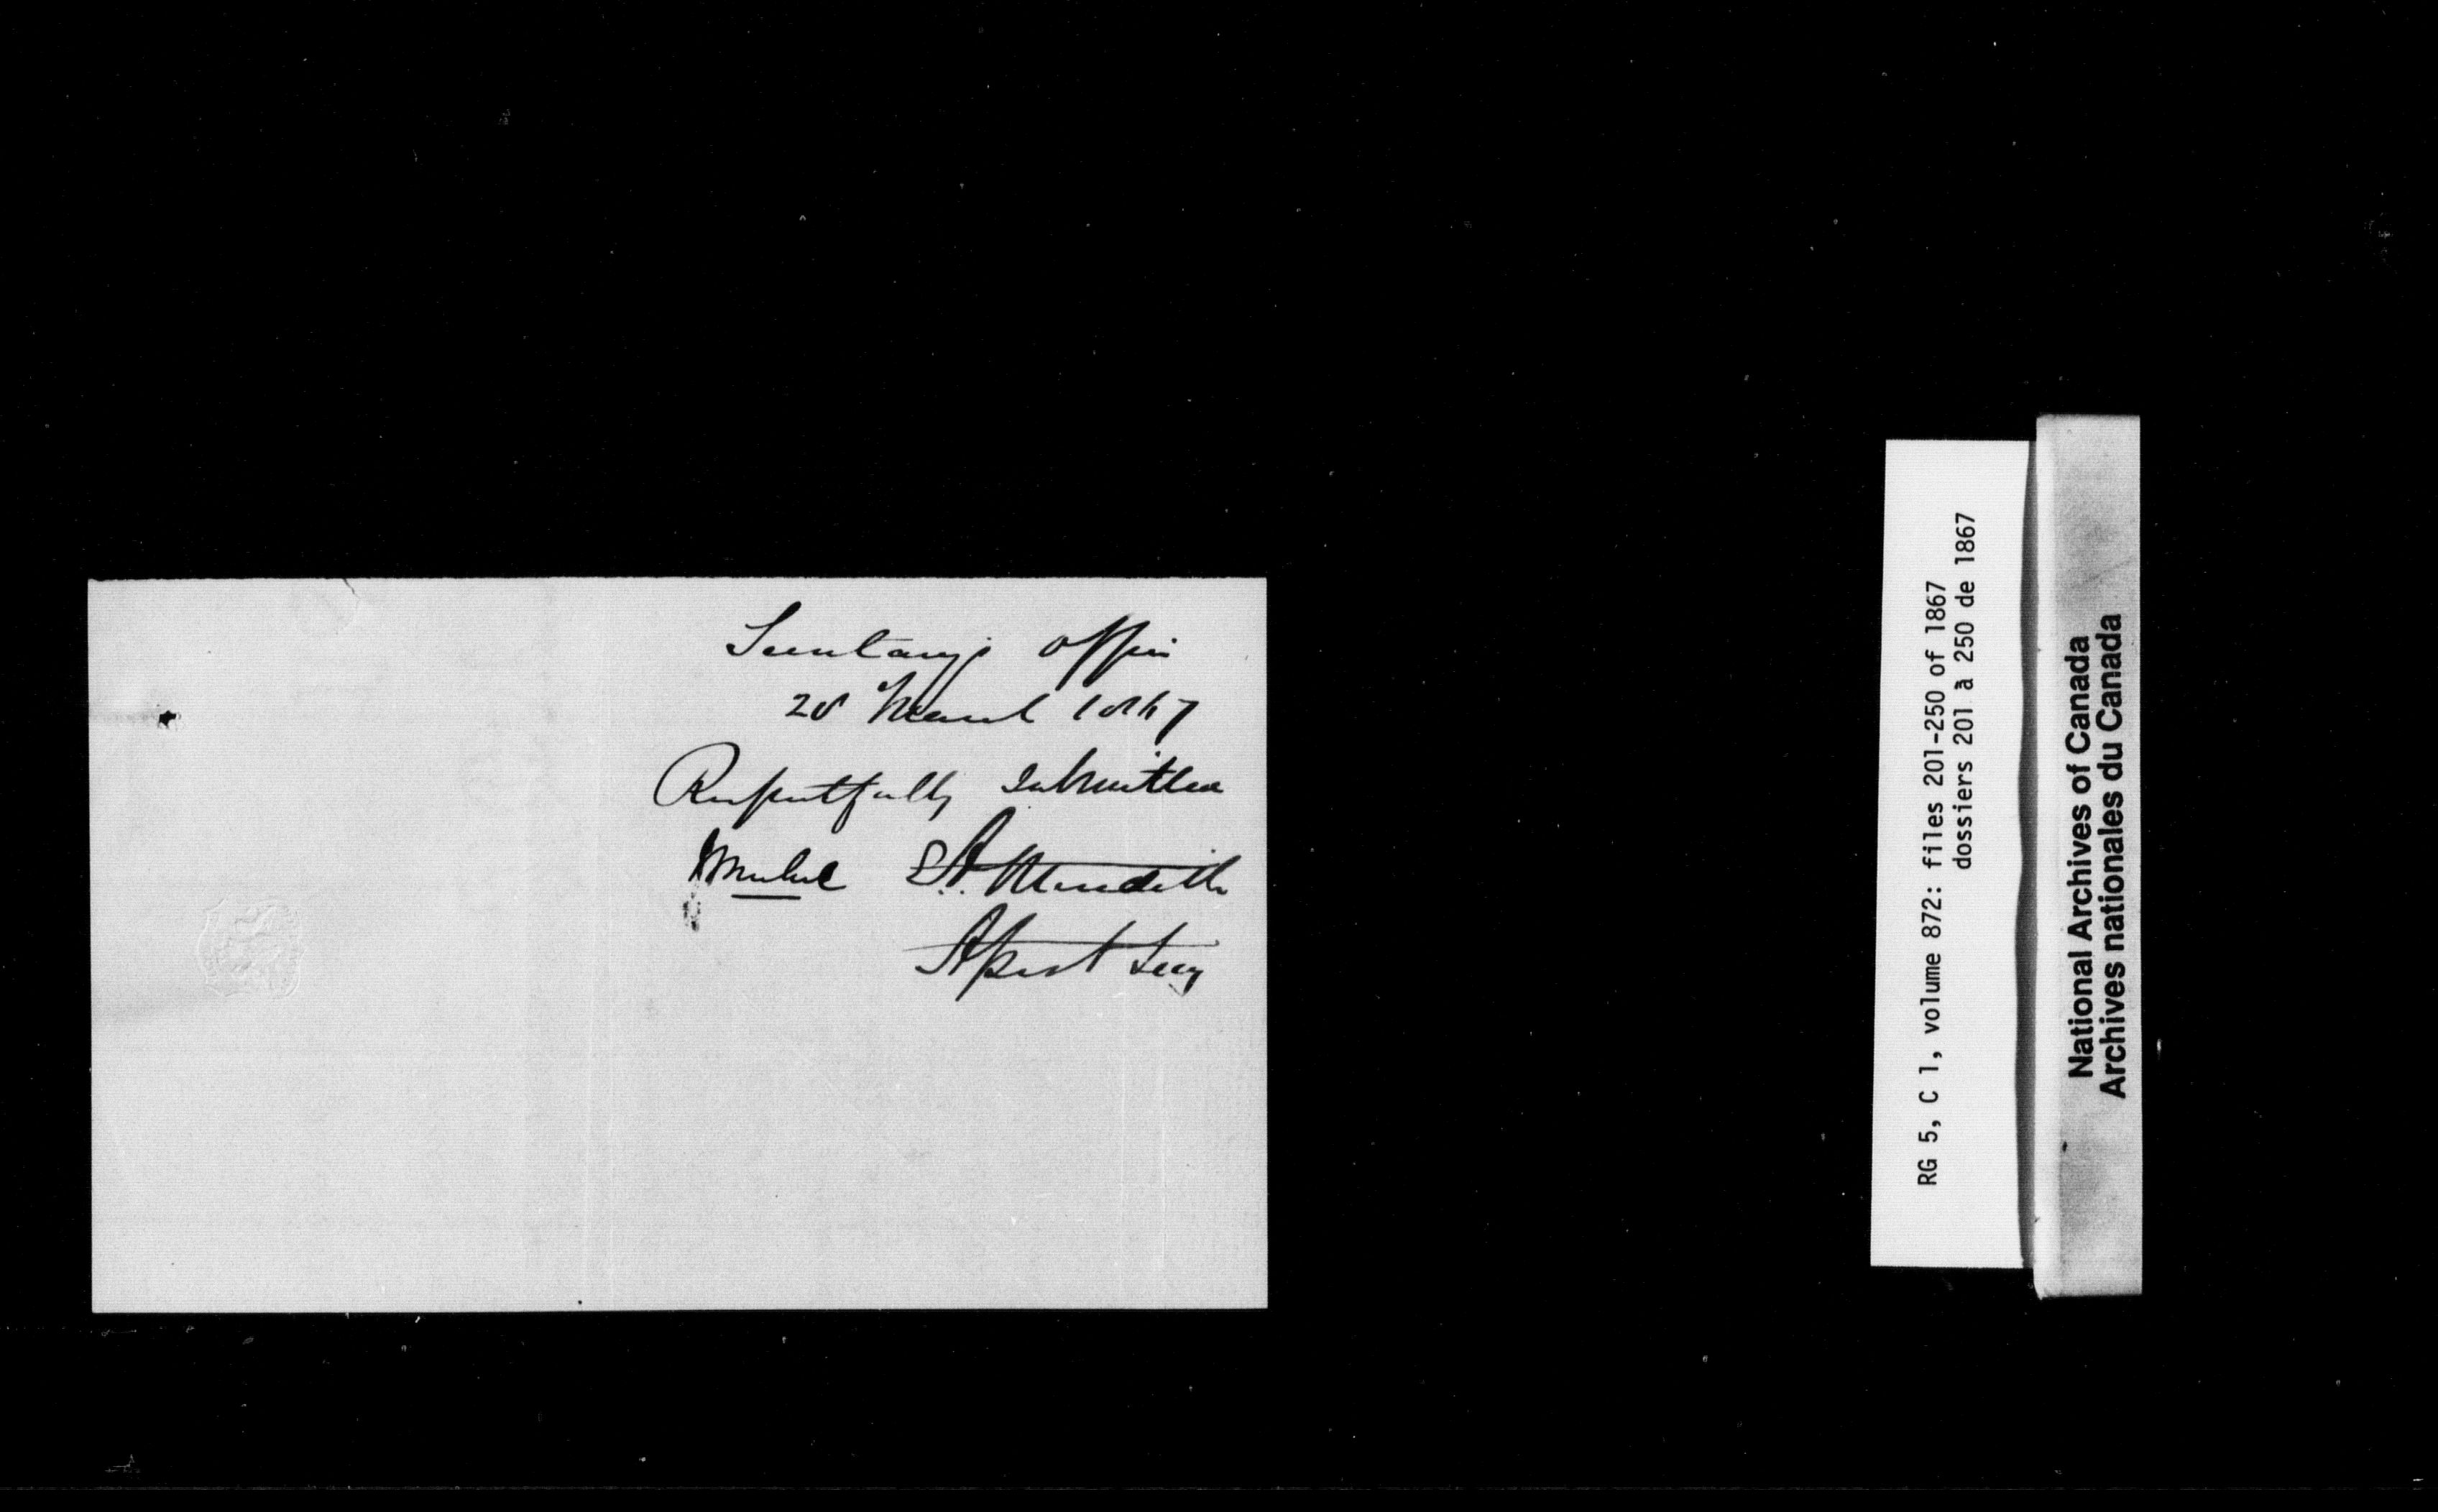 Secretary's Office
28 March 1867
Respectfully Submitted
E A Meredith
Asst Secy
RG 5, C 1, volume 872: files 201-250 of 1867
dossiers 201 à 250 de 1867
National Archives of Canada
Archives nationales du Canada